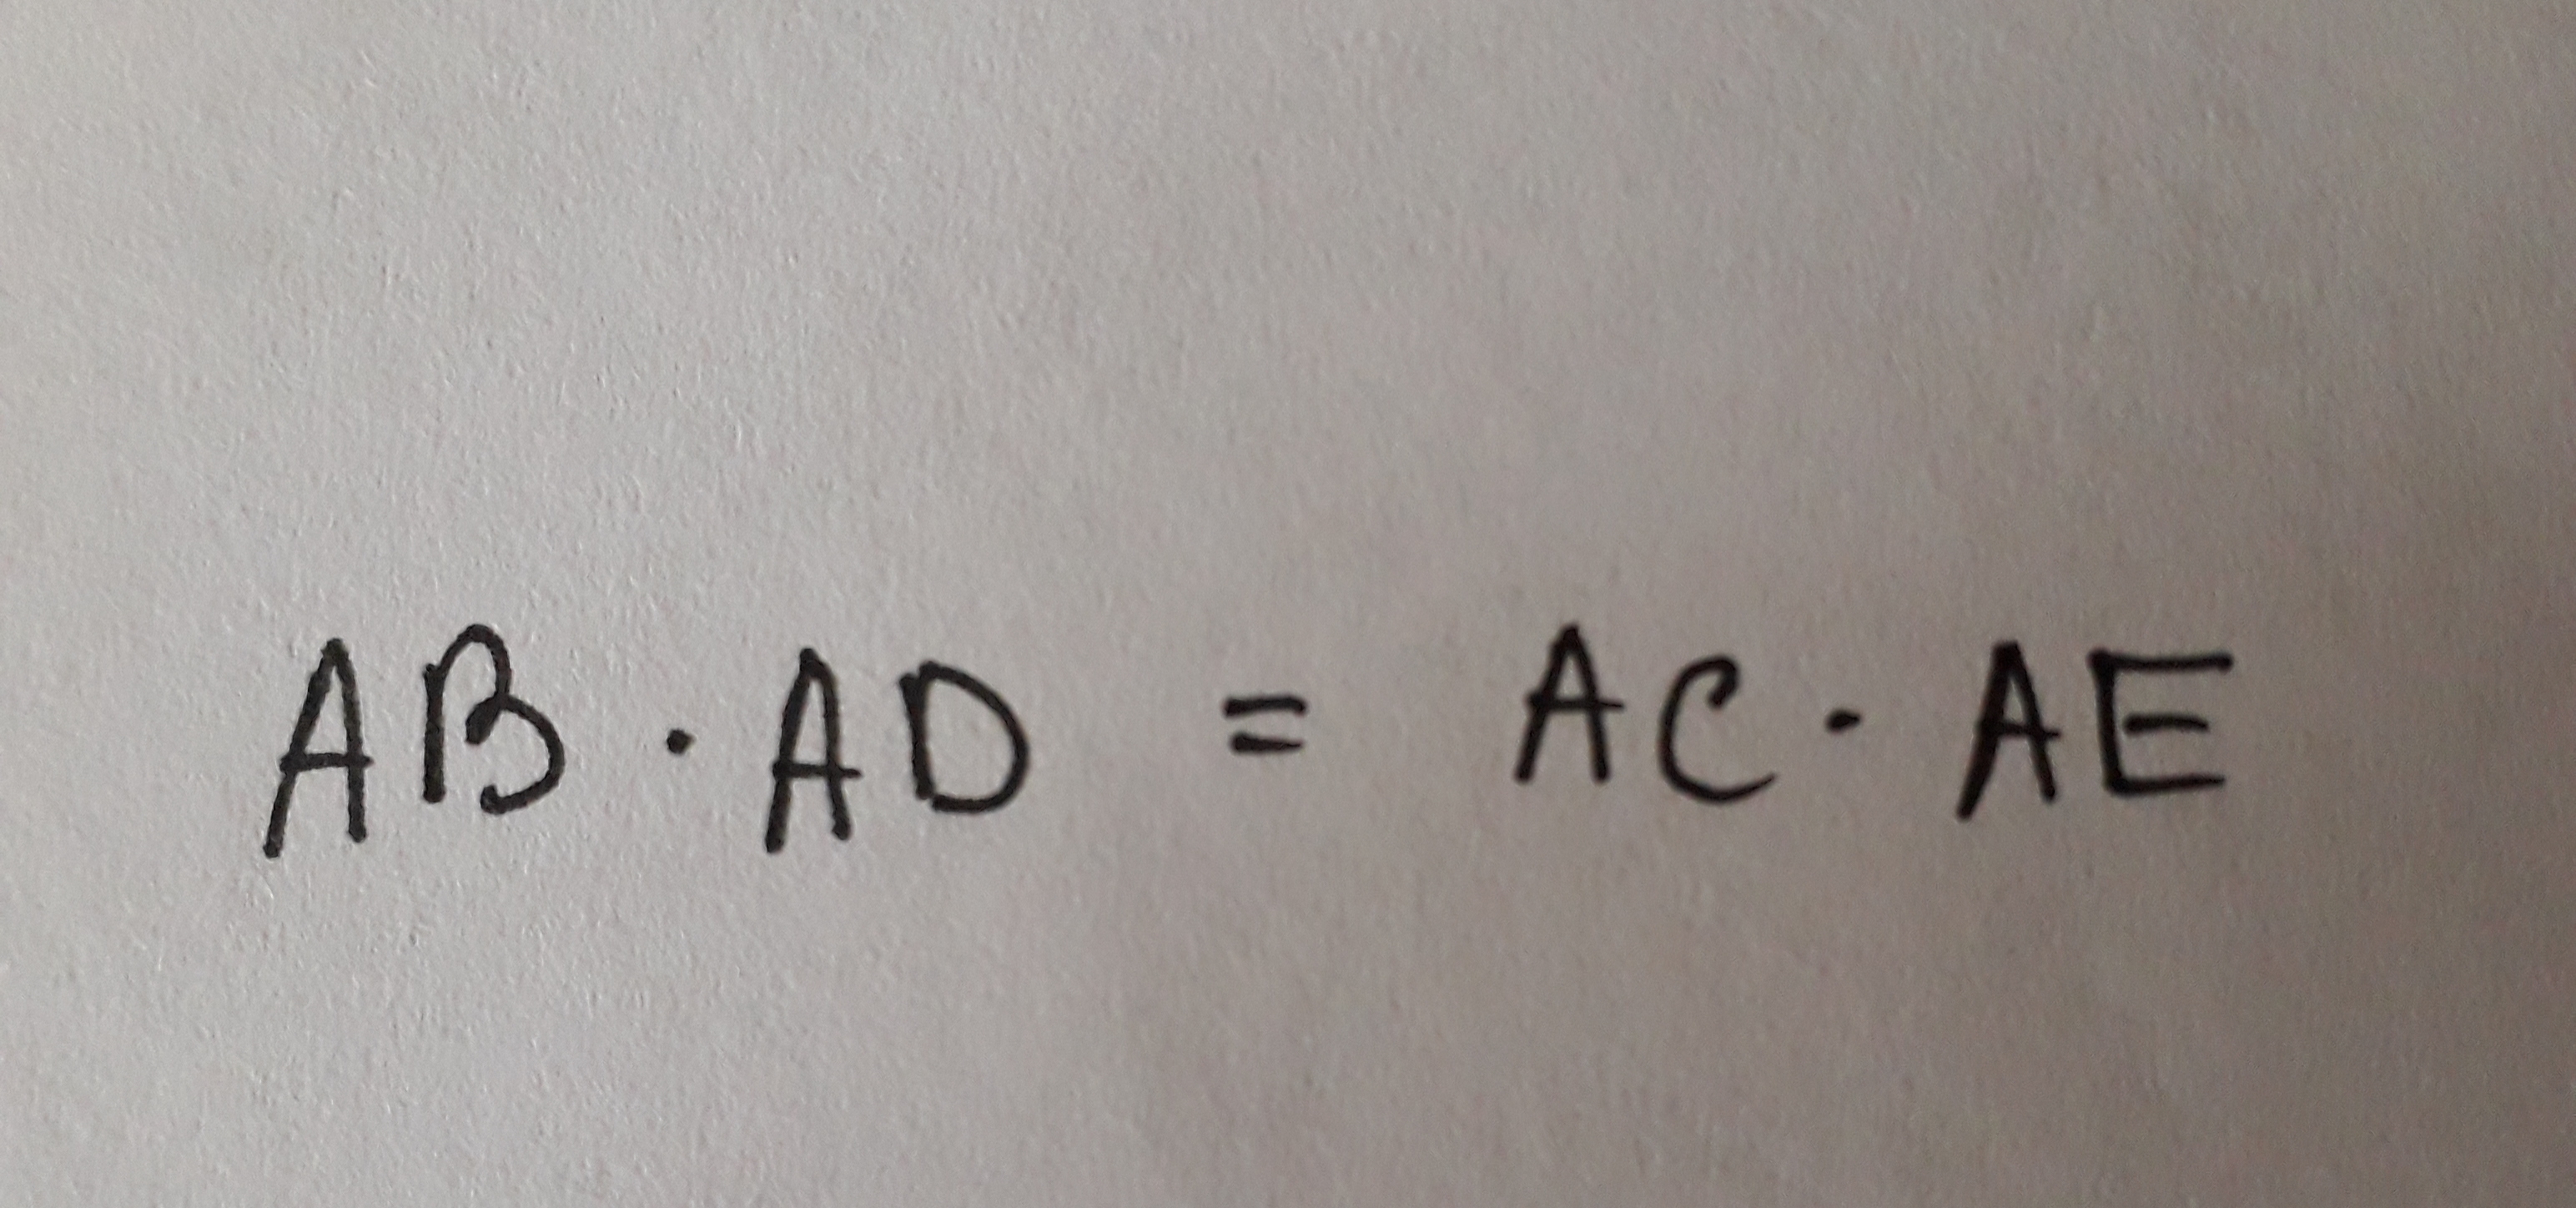 AB · AD = AC · AE